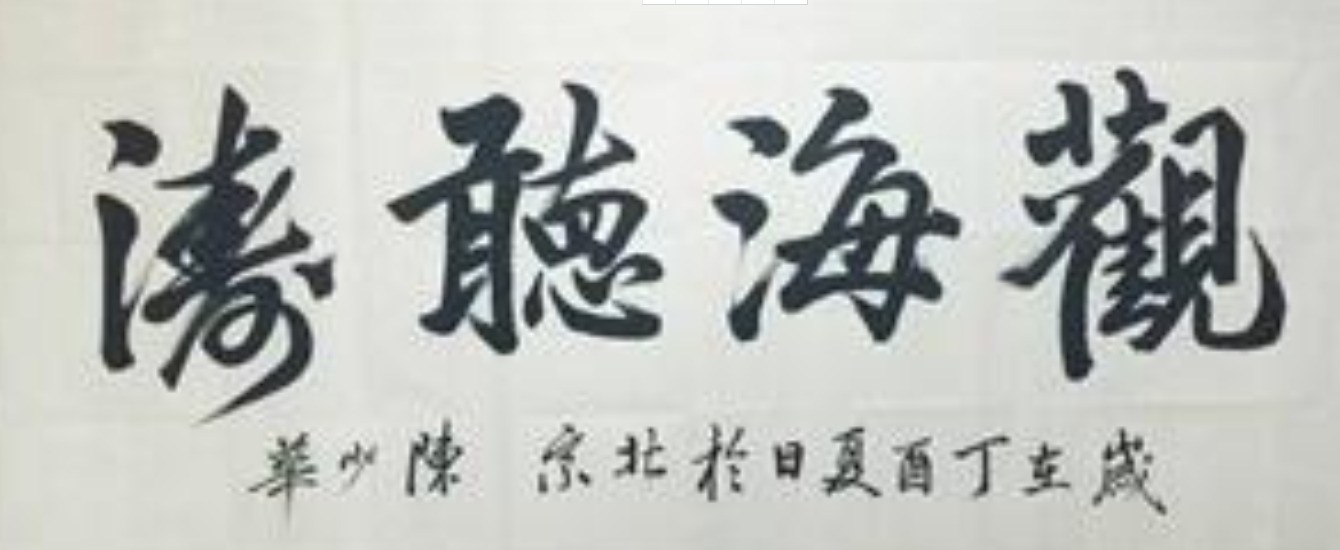 觀海聽濤
歲在丁酉夏日於北京 陳少華